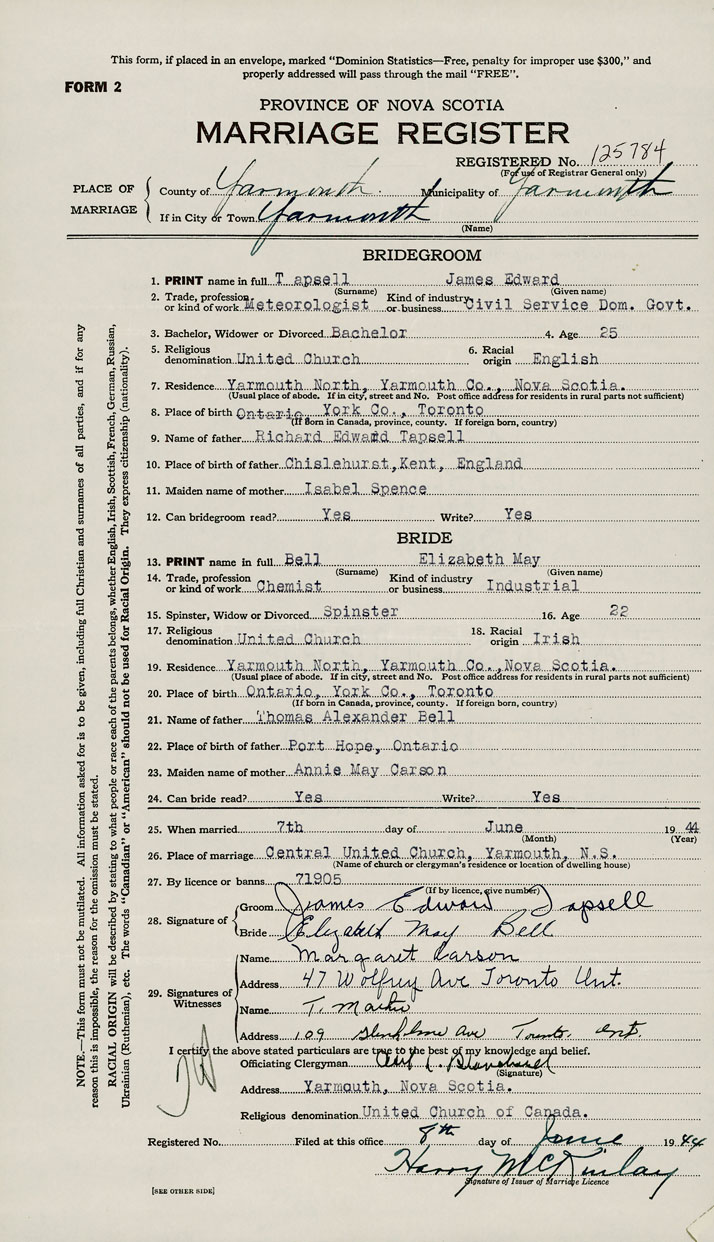 This form, if placed in an envelope, marked "Dominion Statistics—Free, penalty for improper use $300," and
properly addressed will pass through the mail "FREE".
FORM 2
PROVINCE OF NOVA SCOTIA
MARRIAGE REGISTER
REGISTERED No. 125784
(For use of Registrar General only)
PLACE OF MARRIAGE
County of Yarmouth Municipality of Yarmouth
If in City or Town Yarmouth
(Name)
BRIDEGROOM
1. PRINT name in full T apsell James Edward
(Surname) (Given name)
2. Trade, profession or kind of work Meteorologist Kind of industry or business Civil Service Dom. Govt.
3. Bachelor, Widower or Divorced Bachelor 4. Age 25
5. Religious denomination United Church 6. Racial origin English
7. Residence Yarmouth North, Yarmouth Co., Nova Scotia.
(Usual place of abode. If in city, street and No. Post office address for residents in rural parts not sufficient)
8. Place of birth Ontario, York Co., Toronto
(If born in Canada, province, county. If foreign born, country)
9. Name of father Richard Edward Tapsell
10. Place of birth of father Chislehurst,Kent, England
11. Maiden name of mother Isabel Spence
12. Can bridegroom read? Yes Write? Yes
BRIDE
13. PRINT name in full Bell Elizabeth May
(Surname) (Given name)
14. Trade, profession or kind of work Chemist Kind of industry or business Industrial
15. Spinster, Widow or Divorced Spinster 16. Age 22
17. Religious denomination United Church 18. Racial origin Irish
19. Residence Yarmouth North, Yarmouth Co.,Nova Scotia.
(Usual place of abode. If in city, street and No. Post office address for residents in rural parts not sufficient)
20. Place of birth Ontario, York Co., Toronto
(If born in Canada, province, county. If foreign born, country)
21. Name of father Thomas Alexander Bell
22. Place of birth of father Port Hope, Ontario
23. Maiden name of mother Annie May Carson
24. Can bride read? Yes Write? Yes
25. When married 7th day of June 19 44
(Month) (Year)
26. Place of marriage Central United Church, Yarmouth, N.S.
(Name of church or clergyman's residence or location of dwelling house)
27. By licence or banns 71905
(If by licence, give number)
28. Signature of
Groom James Edward Tapsell
Bride Elizabeth May Bell
29. Signatures of Witnesses
Name Margaret Carson
Address 47 Wolfrey Ave Toronto Ont.
Name T. Martin
Address 109 Ave Toronto. Ont.
I certify the above stated particulars are true to the best of my knowledge and belief.
Officiating Clergyman
(Signature)
Address Yarmouth, Nova Scotia.
Religious denomination United Church of Canada.
Registered No. Filed at this office 8th day of June 19 44
Harry McKinlay
Signature of Issuer of Marriage Licence
[SEE OTHER SIDE]
NOTE.—This form must not be mutilated. All information asked for is to be given, including full Christian and surnames of all parties, and if for any
reason this is impossible, the reason for the omission must be stated.
RACIAL ORIGIN will be described by stating to what people or race each of the parents belongs, whether English, Irish, Scottish, French, German, Russian,
Ukrainian (Ruthenian), etc. The words "Canadian" or "American" should not be used for Racial Origin. They express citizenship (nationality).